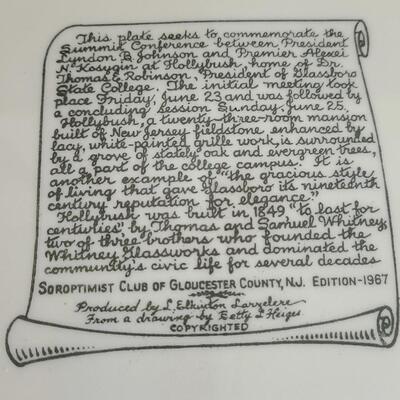 This plate seeks to commemorate the
Summit Conference between President
Lyndon B. Johnson and Premier Alexei
N. Kosygin at Hollybush, home of Dr.
Thomas E. Robinson, President of Glassboro
State College. The initial meeting took
place Friday, June 23 and was followed by
a concluding session Sunday, June 25.
Hollybush, a twenty-three-room mansion
built of New Jersey fieldstone enhanced by
lacy, white-painted grille work, is surrounded
by a grove of stately oak and evergreen trees,
all a part of the college campus. It is
another example of "the gracious style
of living that gave Glassboro its nineteenth
century reputation for elegance."
Hollybush was built in 1849 "to last for
centuries", by Thomas and Samuel Whitney,
two of three brothers who founded the
Whitney Glassworks and dominated the
community's civic life for several decades
SOROPTIMIST CLUB OF GLOUCESTER COUNTY, N.J. EDITION-1967
Produced by L. Elkinton Larzelere
From a drawing by Betty L. Heiges
COPYRIGHTED